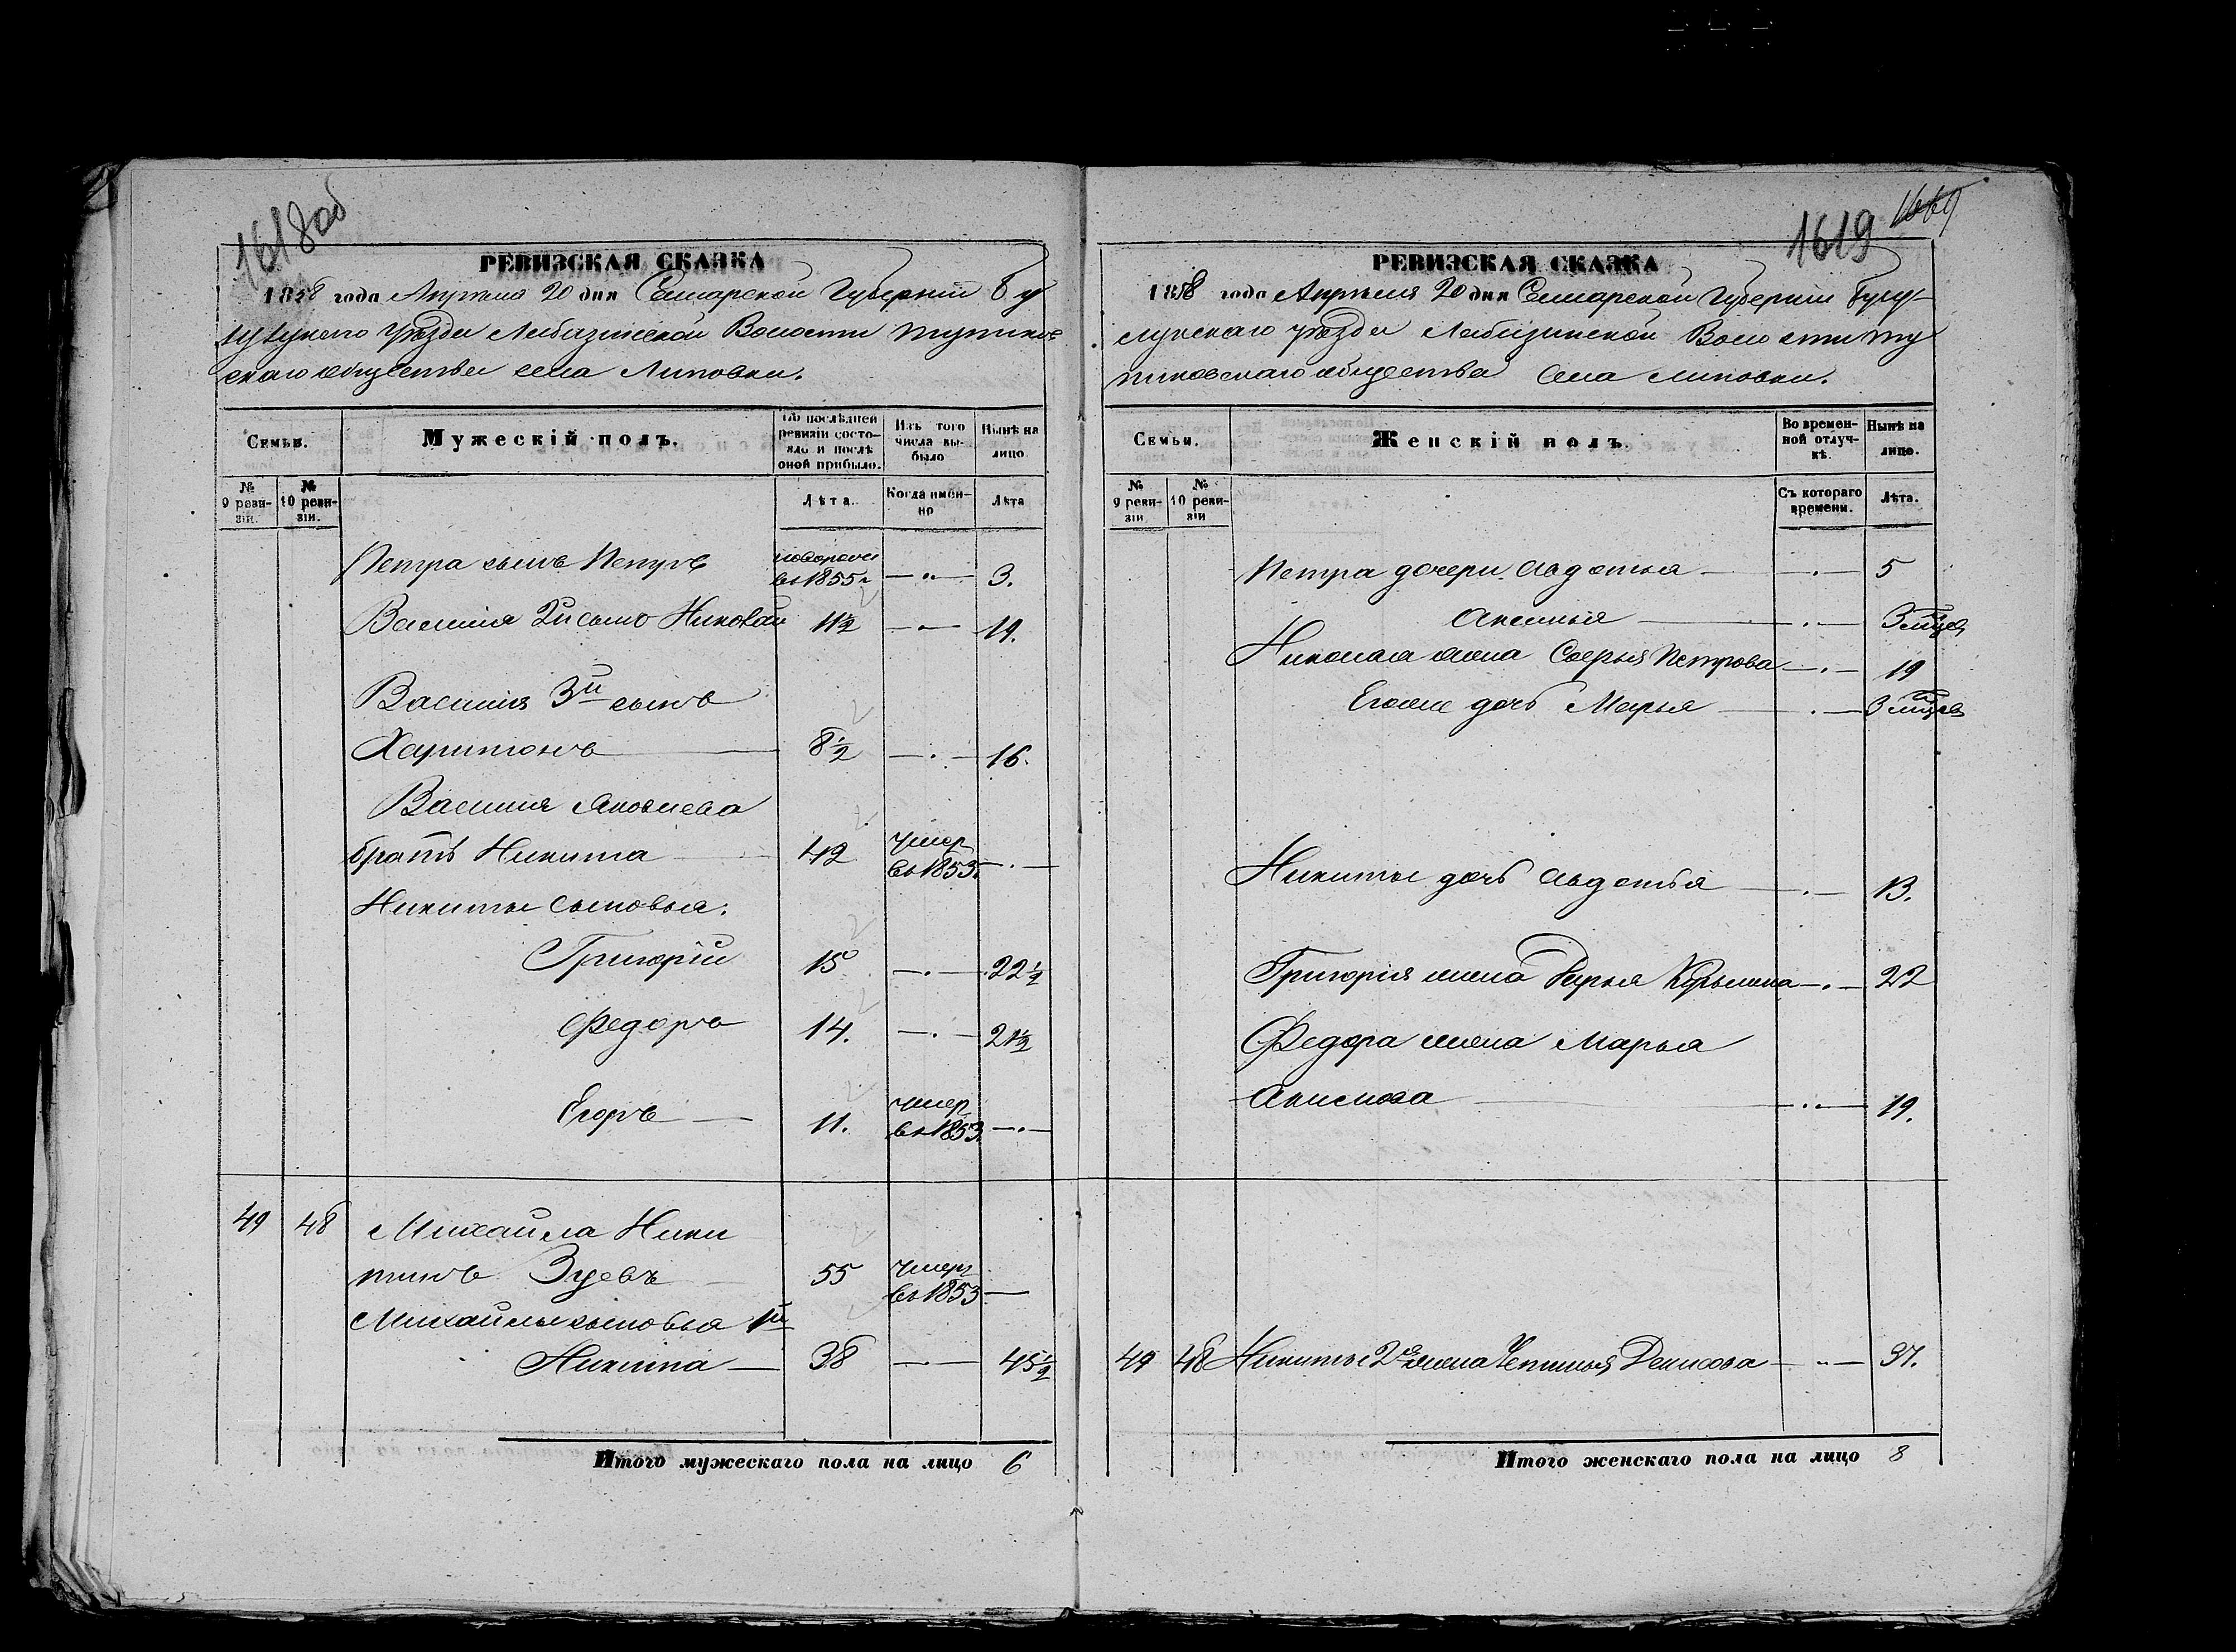 1618об
РЕВИЗСКАЯ СКАЗКА
1858 года Апреля 20 дня Самарской Губернии Бу
гульскаго уѣзда Лабазинской Волости
скаго общества села Липовки.
Семьи.
Мужескій полъ.
По послѣдней ревизіи состояло и послѣ оной прибыло.
Изъ того числа выбыло
Нынѣ на лицо
№ 9 ревизіи.
№ 10 ревизіи.
Лѣта.
Когда именно
Лѣта
Петра сынъ Петръ новорожен въ 1855 г — 3.
Василія 2й сынъ Николай 11½ — 19.
Василія 3й сынъ
Харитонъ 8½ — 16.
Василія Яковлева
братъ Никита 42 умер въ 1853. —
Никиты сыновья:
Григорій 15 — 22½
Федоръ 14. — 21½
Егоръ — 11. умер въ 1853. —
49 48 Михайла Ники
тинъ Зуевъ 55 умеръ въ 1853 —
Михайлы сыновья 1й
Никита — 38 — 45½
Итого мужескаго пола на лицо 6
1619
РЕВИЗСКАЯ СКАЗКА
1858 года Апреля 20 дня Самарской Губернии Бугу-
лускаго уѣзда Лабазинской Волости
общества села Липовки.
Семьи.
Женскій полъ.
Во временной отлучкѣ.
Нынѣ на лицо.
№ 9 ревизіи
№ 10 ревизіи
Съ котораго времени.
Лѣта.
Петра дочери. Авдотья — 5
Аксинья — 3 мѣсец
Николая жена Софья Петрова — 19
Егоже дочь Марья — 3 мѣсец
Никиты дочь Авдотья — 13.
Григорія жена Дарья — 22
Федора жена Марья
Акимова — 19.
49 48 Никиты 2я жена Денисова — 37.
Итого женскаго пола на лицо 8